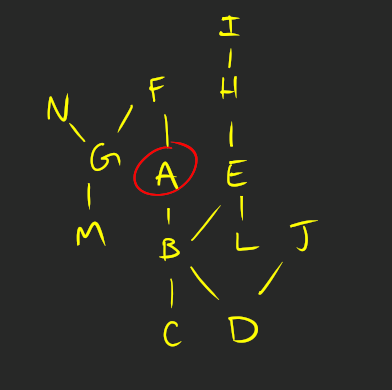 I
N F H
G A E
M B L J
C D